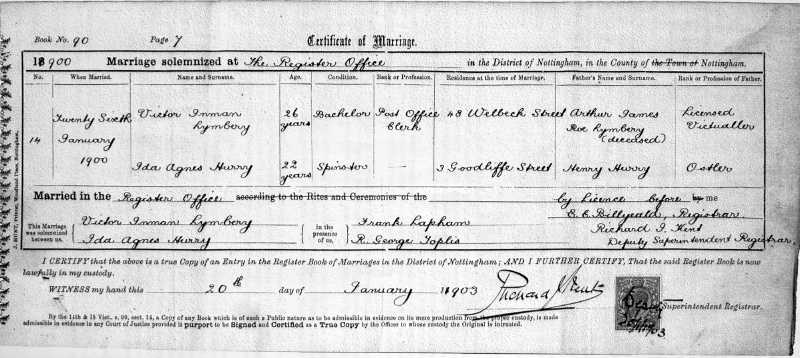 Book No. 90 Page 7 Certificate of Marriage.
18900 Marriage solemnized at The Register Office in the District of Nottingham, in the County of the Town of Nottingham.
No. When Married. Name and Surname. Age. Condition. Rank or Profession. Residence at the time of Marriage. Father's Name and Surname. Rank or Profession of Father.
14
Twenty Sixth
January
1900
Victor Inman
Lymbery
26
years
Bachelor
Post Office
Clerk
48 Welbeck Street
Arthur James
Roe Lymbery
(deceased)
Licensed
Victualler
Ida Agnes Hurry
22
years
Spinster
—
3 Goodliffe Street
Henry Hurry
Ostler
Married in the Register Office according to the Rites and Ceremonies of the by Licence before by me
This Marriage
was solemnized
between us,
Victor Inman Lymbery
Ida Agnes Hurry
in the
presence
of us,
Frank Lapham
R. George Toplis
E. E. Billyeald, Registrar
Richard J. Kent
Deputy Superintendent Registrar
I CERTIFY that the above is a true Copy of an Entry in the Register Book of Marriages in the District of Nottingham; AND I FURTHER CERTIFY, That the said Register Book is now
lawfully in my custody.
WITNESS my hand this 20th day of January 1903 Richard J Kent Superintendent Registrar.
By the 14th & 15 Vict. c. 99, sect. 14, a Copy of any Book which is of such a Public nature as to be admissible in evidence on its mere production from the proper custody, is made
admissible in evidence in any Court of Justice provided it purport to be Signed and Certified as a True Copy by the Officer to whose custody the Original is intrusted.